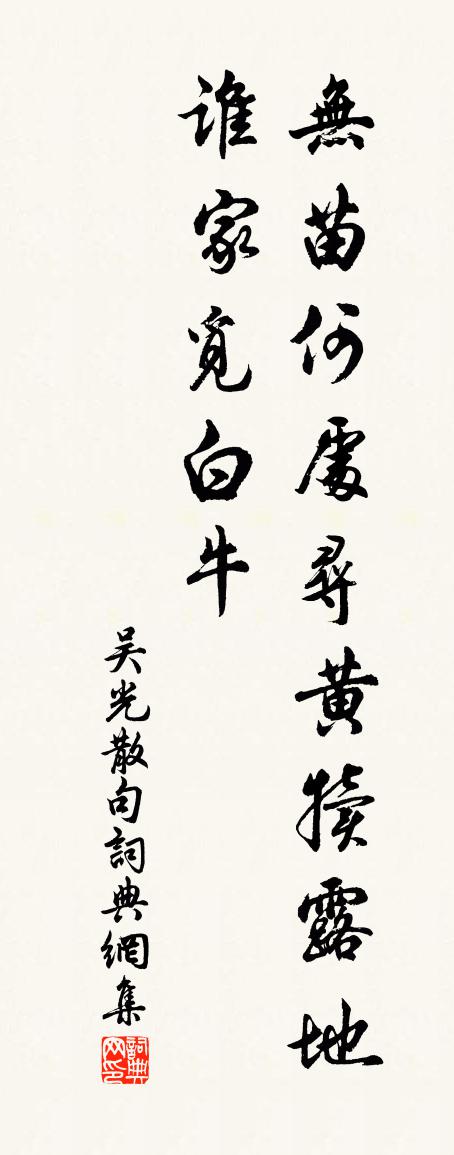 無苗何處尋黃犢露地
誰家覓白牛
吴光散句詞典網集
詞典网印